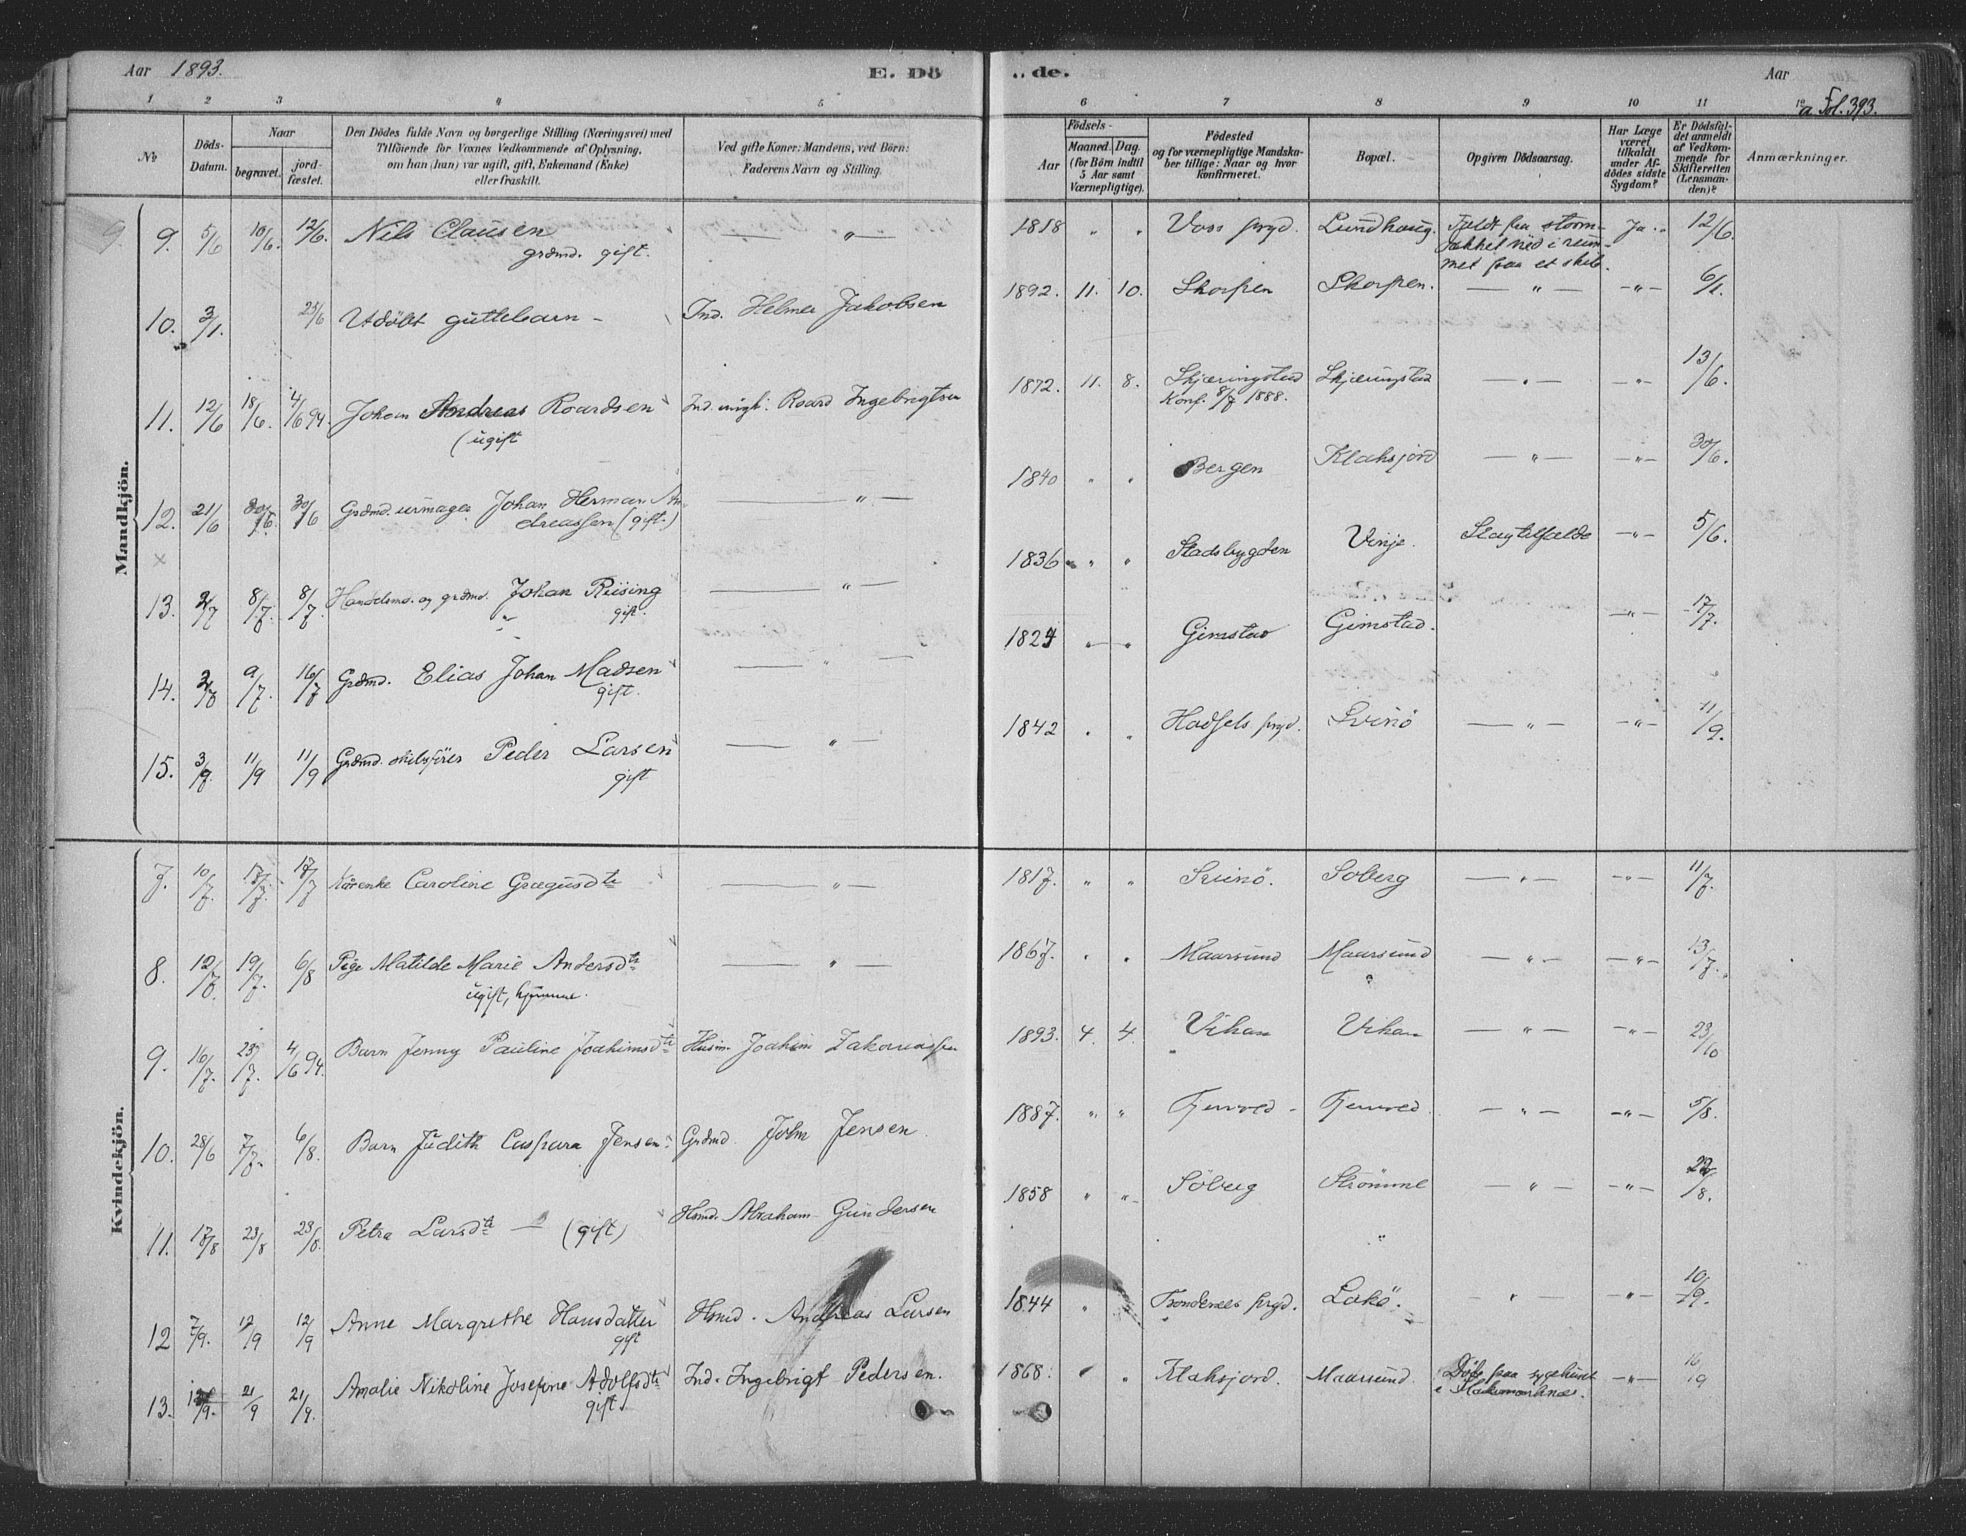 Aar 1893. E. Dö
1 2 3 4 5
№
Döds-
Datum.
Naar
begravet.
jord-
fæstet.
Den Dödes fulde Navn og borgerlige Stilling (Næringsvei) med
Tilföiende for Voxnes Vedkommende af Oplysning,
om han (hun) var ugift, gift, Enkemand (Enke)
eller fraskilt.
Ved gifte Koner: Mandens, ved Börn:
Faderens Navn og Stilling.
Mandkjön.
9. 5/6 10/6. 12/6. Nils Clausen — „ —
grdmd. gift.
10. 3/1. 25/6 Udöbt guttebarn - Ind. Helmer Jakobsen
11. 12/6 18/6. 4/6 94. Johan Andreas Roardsen Ind. Roard Ingebrigtsen
(ugift
12. 21/6 30/6. 30/6 Grdmd. urmager Johan Herman An- — „ —
dreassen (gift.)
13. 2/7 8/7. 8/7 Handelsmd. og grdmd. Johan Rüsing — „ —
gift.
14. 9/7. 16/7 Grdmd. Elias Johan Madsen — „ —
gift.
15. 3/9. 11/9 11/9 Grdmd. skibsförer Peder Larsen — „ —
gift
Kvindekjön.
7. 10/7. 17/7. 17/7 Kårenke Caroline Grægusdtr — „ —
8. 12/7. 19/7. 6/8 Pige Matilde Marie Andersdtr — „ —
ugift, hjemme.
9. 16/7. 23/7. 4/6 94. Barn Jenny Pauline Joakimsdtr Husm. Joakim Zakariassen
10. 28/6 7/7. 6/8. Barn Judith Caspara Jensen Grdmd. John Jensen
11. 17/8 23/8 23/8. Petra Larsdtr — (gift) Hsmd. Abraham Gundersen
12 7/9. 12/9 12/9 Anne Margrethe Hansdatter Hsmd. Andreas Larsen
gift
13. 21/9 21/9. Amalie Nikoline Josefine Adolfsdtr Ind. Ingebrigt Pedersen.
gift
de. Aar
6 7 8 9 10 11 12
a Fol. 393.
Födsels-
Aar
Maaned. Dag.
(for Börn indtil
5 Aar samt
Værnepligtige).
Födested
og for værnepligtige Mandska-
ber tillige: Naar og hvor
konfirmeret.
Bopæl.
Opgiven Dödsaarsag.
Har Læge
været
tilkaldt
under Af-
dödes sidste
Sygdom?
Er Dödsfal-
det anmeldt
af Vedkom-
mende for
Skifteretten
(Lensman-
den)?
Anmærkninger.
1818 „ „ Voss prgd. Lundhaug. Faldt fra storm- Ja. 12/6.
jakket ned i rum-
met paa et skib.
1892. 11. 10. Skorpen Skorpen. — „ — — „ — 6/1.
1872. 11. 8. Skjæringstad Skjæringstad — „ — — „ — 13/6.
Konf. 8/7 1888.
1840 „ „ Bergen Klaksjord — „ — — „ — 30/6.
1836 „ „ Stadsbygden Vinje. Slagtilfælde — „ — 5/6.
1824 „ „ Gimstad Gimstad. — „ — 17/7.
1842 „ „ Hadsels prgd. Svinö — „ — — „ — 11/9.
1817. „ „ Svinö. Soberg — „ — — „ — 11/7.
1867. „ „ Maarsund Maarsund — „ — — „ — 13/7.
1893. 4. 4. Vikan Vikan — „ — — „ — 23/10
1887. „ „ Tjenred - Tjenred — „ — — „ — 5/8.
1858 „ „ Söberg Strömme — „ — — „ — 22/8.
1844 „ Trondenæs prgd. Lakö. — „ — — „ — 10/9.
1868. „ „ Klaksjord. Maarsund. Döde paa sygehuset — „ — 16/9
i Stokmarknæs.